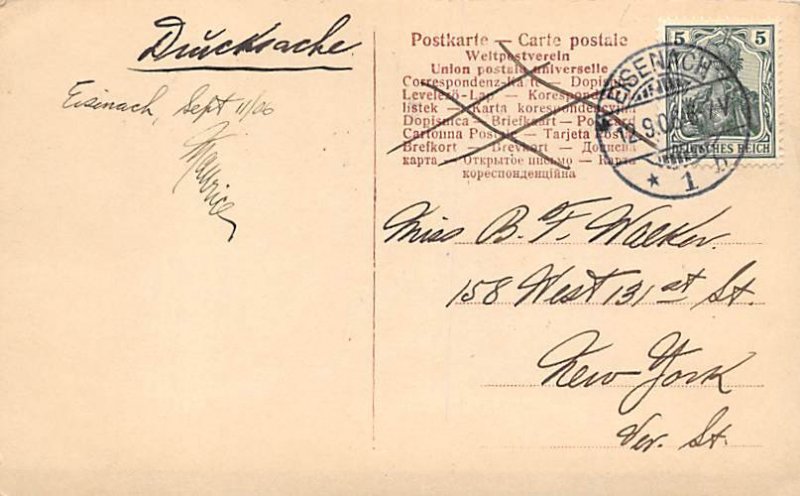 Drucksache
Eisinach, Sept 11/06
Maurice
Postkarte — Carte postale
Weltpostverein
Union postale universelle
Correspondenz-karte — Dopisnice
Levelező-Lap — Korespondenční
listek — Karta korespondencyjna
Dopisnica — Briefkaart — Postcard
Cartolina Postale — Tarjeta Postal
Brefkort — Brevkort — Дописна
карта — Открытое письмо — Карта
кореспонденційна
5 5
DEUTSCHES REICH
EISENACH
12.9.06
* 1 b
Miss B. F. Walker.
158 West 131st St.
New York
Ver. St.